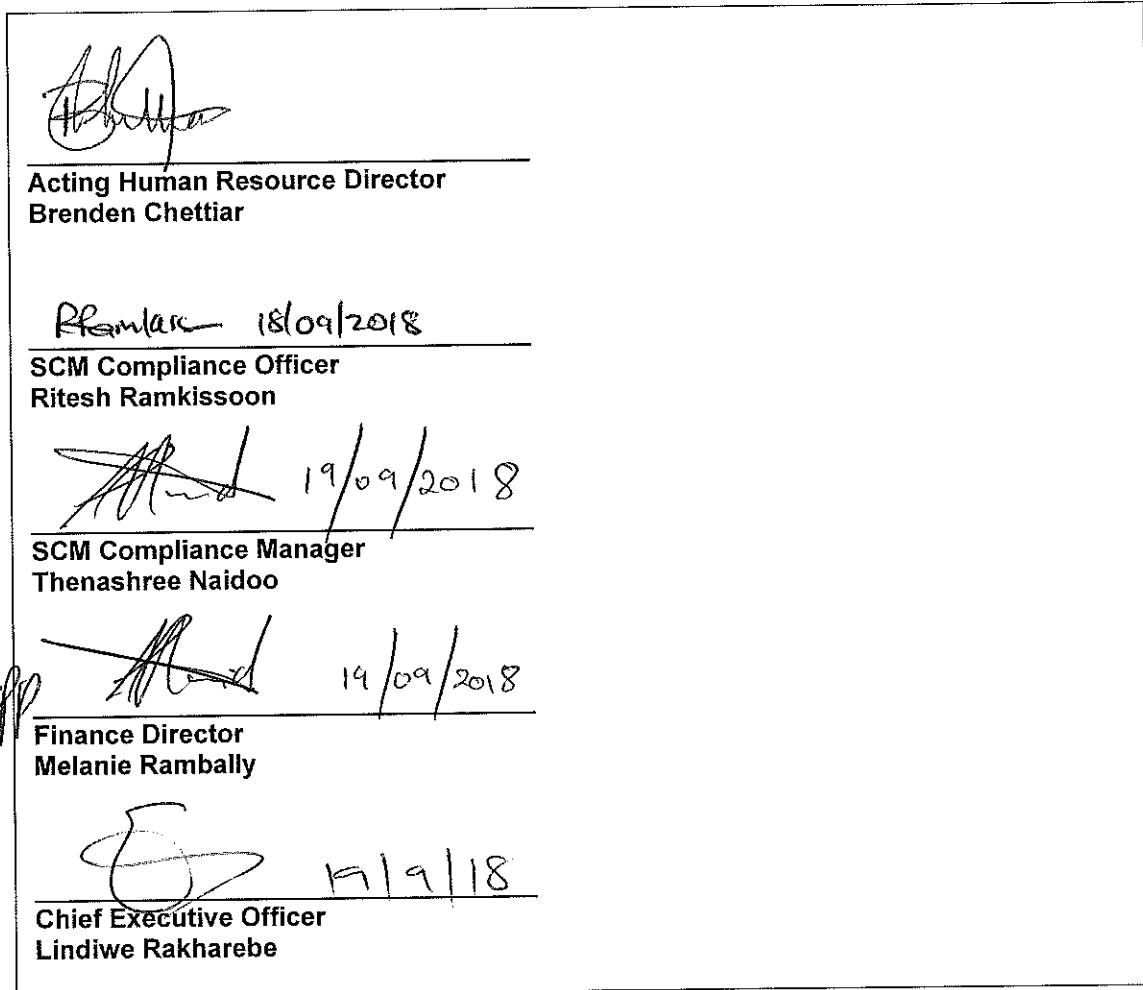 Acting Human Resource Director
Brenden Chettiar
18/09/2018
SCM Compliance Officer
Ritesh Ramkissoon
19/09/2018
SCM Compliance Manager
Thenashree Naidoo
pp 19/09/2018
Finance Director
Melanie Rambally
19/9/18
Chief Executive Officer
Lindiwe Rakharebe